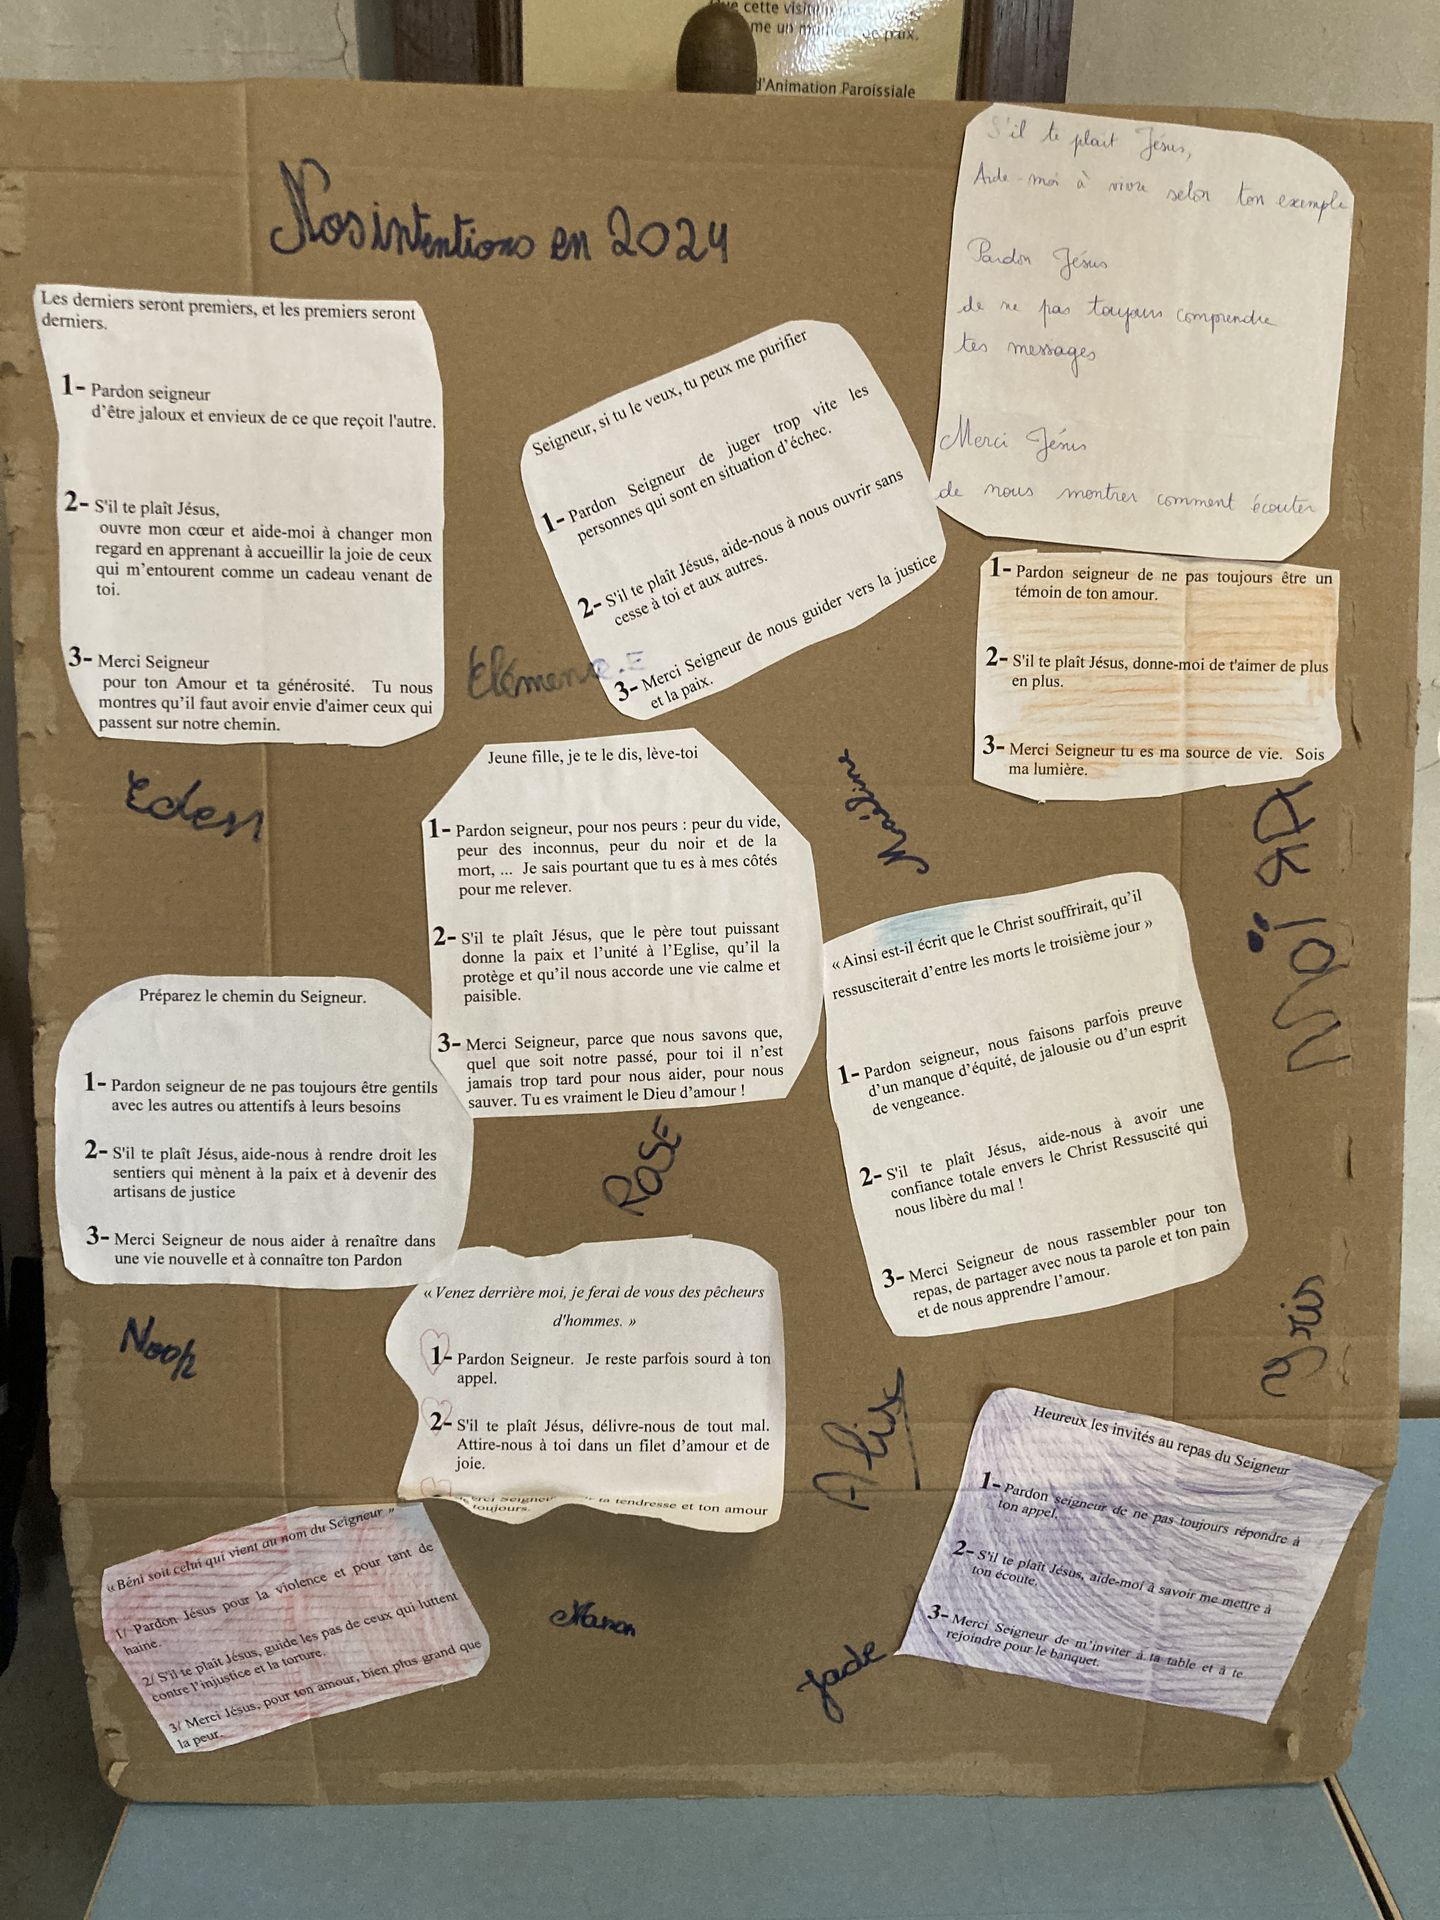 cette
me un
d'Animation Paroissiale
Nos intentions en 2024
Les derniers seront premiers, et les premiers seront
derniers.
1- Pardon seigneur
d'être jaloux et envieux de ce que reçoit l'autre.
2- S'il te plaît Jésus,
ouvre mon cœur et aide-moi à changer mon
regard en apprenant à accueillir la joie de ceux
qui m'entourent comme un cadeau venant de
toi.
3- Merci Seigneur
pour ton Amour et ta générosité. Tu nous
montres qu'il faut avoir envie d'aimer ceux qui
passent sur notre chemin.
Eden
Seigneur, si tu le veux, tu peux me purifier
1- Pardon Seigneur de juger trop vite les
personnes qui sont en situation d'échec.
2- S'il te plaît Jésus, aide-nous à nous ouvrir sans
cesse à toi et aux autres.
3- Merci Seigneur de nous guider vers la justice
et la paix.
S'il te plait Jésus,
Aide-moi à vivre selon ton exemple
Pardon Jésus
de ne pas toujours comprendre
tes messages
Merci Jésus
de nous montrer comment écouter
1- Pardon seigneur de ne pas toujours être un
témoin de ton amour.
2- S'il te plaît Jésus, donne-moi de t'aimer de plus
en plus.
3- Merci Seigneur tu es ma source de vie. Sois
ma lumière.
Maëline
Jeune fille, je te le dis, lève-toi
1- Pardon seigneur, pour nos peurs : peur du vide,
peur des inconnus, peur du noir et de la
mort, ... Je sais pourtant que tu es à mes côtés
pour me relever.
2- S'il te plaît Jésus, que le père tout puissant
donne la paix et l'unité à l'Eglise, qu'il la
protège et qu'il nous accorde une vie calme et
paisible.
3- Merci Seigneur, parce que nous savons que,
quel que soit notre passé, pour toi il n'est
jamais trop tard pour nous aider, pour nous
sauver. Tu es vraiment le Dieu d'amour !
ROSE
« Ainsi est-il écrit que le Christ souffrirait, qu'il
ressusciterait d'entre les morts le troisième jour »
1- Pardon seigneur, nous faisons parfois preuve
d'un manque d'équité, de jalousie ou d'un esprit
de vengeance.
2- S'il te plaît Jésus, aide-nous à avoir une
confiance totale envers le Christ Ressuscité qui
nous libère du mal !
3- Merci Seigneur de nous rassembler pour ton
repas, de partager avec nous ta parole et ton pain
et de nous apprendre l'amour.
Préparez le chemin du Seigneur.
1- Pardon seigneur de ne pas toujours être gentils
avec les autres ou attentifs à leurs besoins
2- S'il te plaît Jésus, aide-nous à rendre droit les
sentiers qui mènent à la paix et à devenir des
artisans de justice
3- Merci Seigneur de nous aider à renaître dans
une vie nouvelle et à connaître ton Pardon
« Venez derrière moi, je ferai de vous des pêcheurs
d'hommes. »
1- Pardon Seigneur. Je reste parfois sourd à ton
appel.
2- S'il te plaît Jésus, délivre-nous de tout mal.
Attire-nous à toi dans un filet d'amour et de
joie.
ta tendresse et ton amour
toujours.
Alix
Iris
Heureux les invités au repas du Seigneur
1- Pardon seigneur de ne pas toujours répondre à
ton appel.
2- S'il te plaît Jésus, aide-moi à savoir me mettre à
ton écoute.
3- Merci Seigneur de m'inviter à ta table et à te
rejoindre pour le banquet.
« Béni soit celui qui vient au nom du Seigneur »
1/ Pardon Jésus pour la violence et pour tant de
haine.
2/ S'il te plaît Jésus, guide les pas de ceux qui luttent
contre l'injustice et la torture.
3/ Merci Jésus, pour ton amour, bien plus grand que
la peur.
Manon
Jade